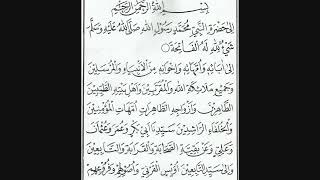 بِسْمِ اللهِ الرَّحْمٰنِ الرَّحِيْمِ
اِلَى حَضْرَةِ النَّبِيِّ مُحَمَّدٍ رَسُوْلِ اللهِ صَلَّى اللهُ عَلَيْهِ وَسَلَّمَ
شَيْءٌ لِلّٰهِ لَهُ الْفَاتِحَة
اِلَى اٰبَائِهِ وَاُمَّهَاتِهِ وَاِخْوَانِهِ مِنَ الْاَنْبِيَاءِ وَالْمُرْسَلِيْنَ
وَجَمِيْعِ مَلَائِكَةِ اللهِ وَالْمُقَرَّبِيْنَ وَاَهْلِ بَيْتِهِ الطَّيِّبِيْنَ
الطَّاهِرِيْنَ وَاَزْوَاجِهِ الطَّاهِرَاتِ اُمَّهَاتِ الْمُؤْمِنِيْنَ
وَالْخُلَفَاءِ الرَّاشِدِيْنَ سَيِّدِنَا اَبِيْ بَكْرٍ وَعُمَرَ وَعُثْمَانَ
وَعَلِيٍّ وَعَنْ بَقِيَّةِ الصَّحَابَةِ وَالْقَرَابَةِ وَالتَّابِعِيْنَ
وَاِلَى سَيِّدِ التَّابِعِيْنَ اُوَيْسِ الْقَرَنِيْ وَاُصُوْلِهِمْ وَفُرُوْعِهِمْ